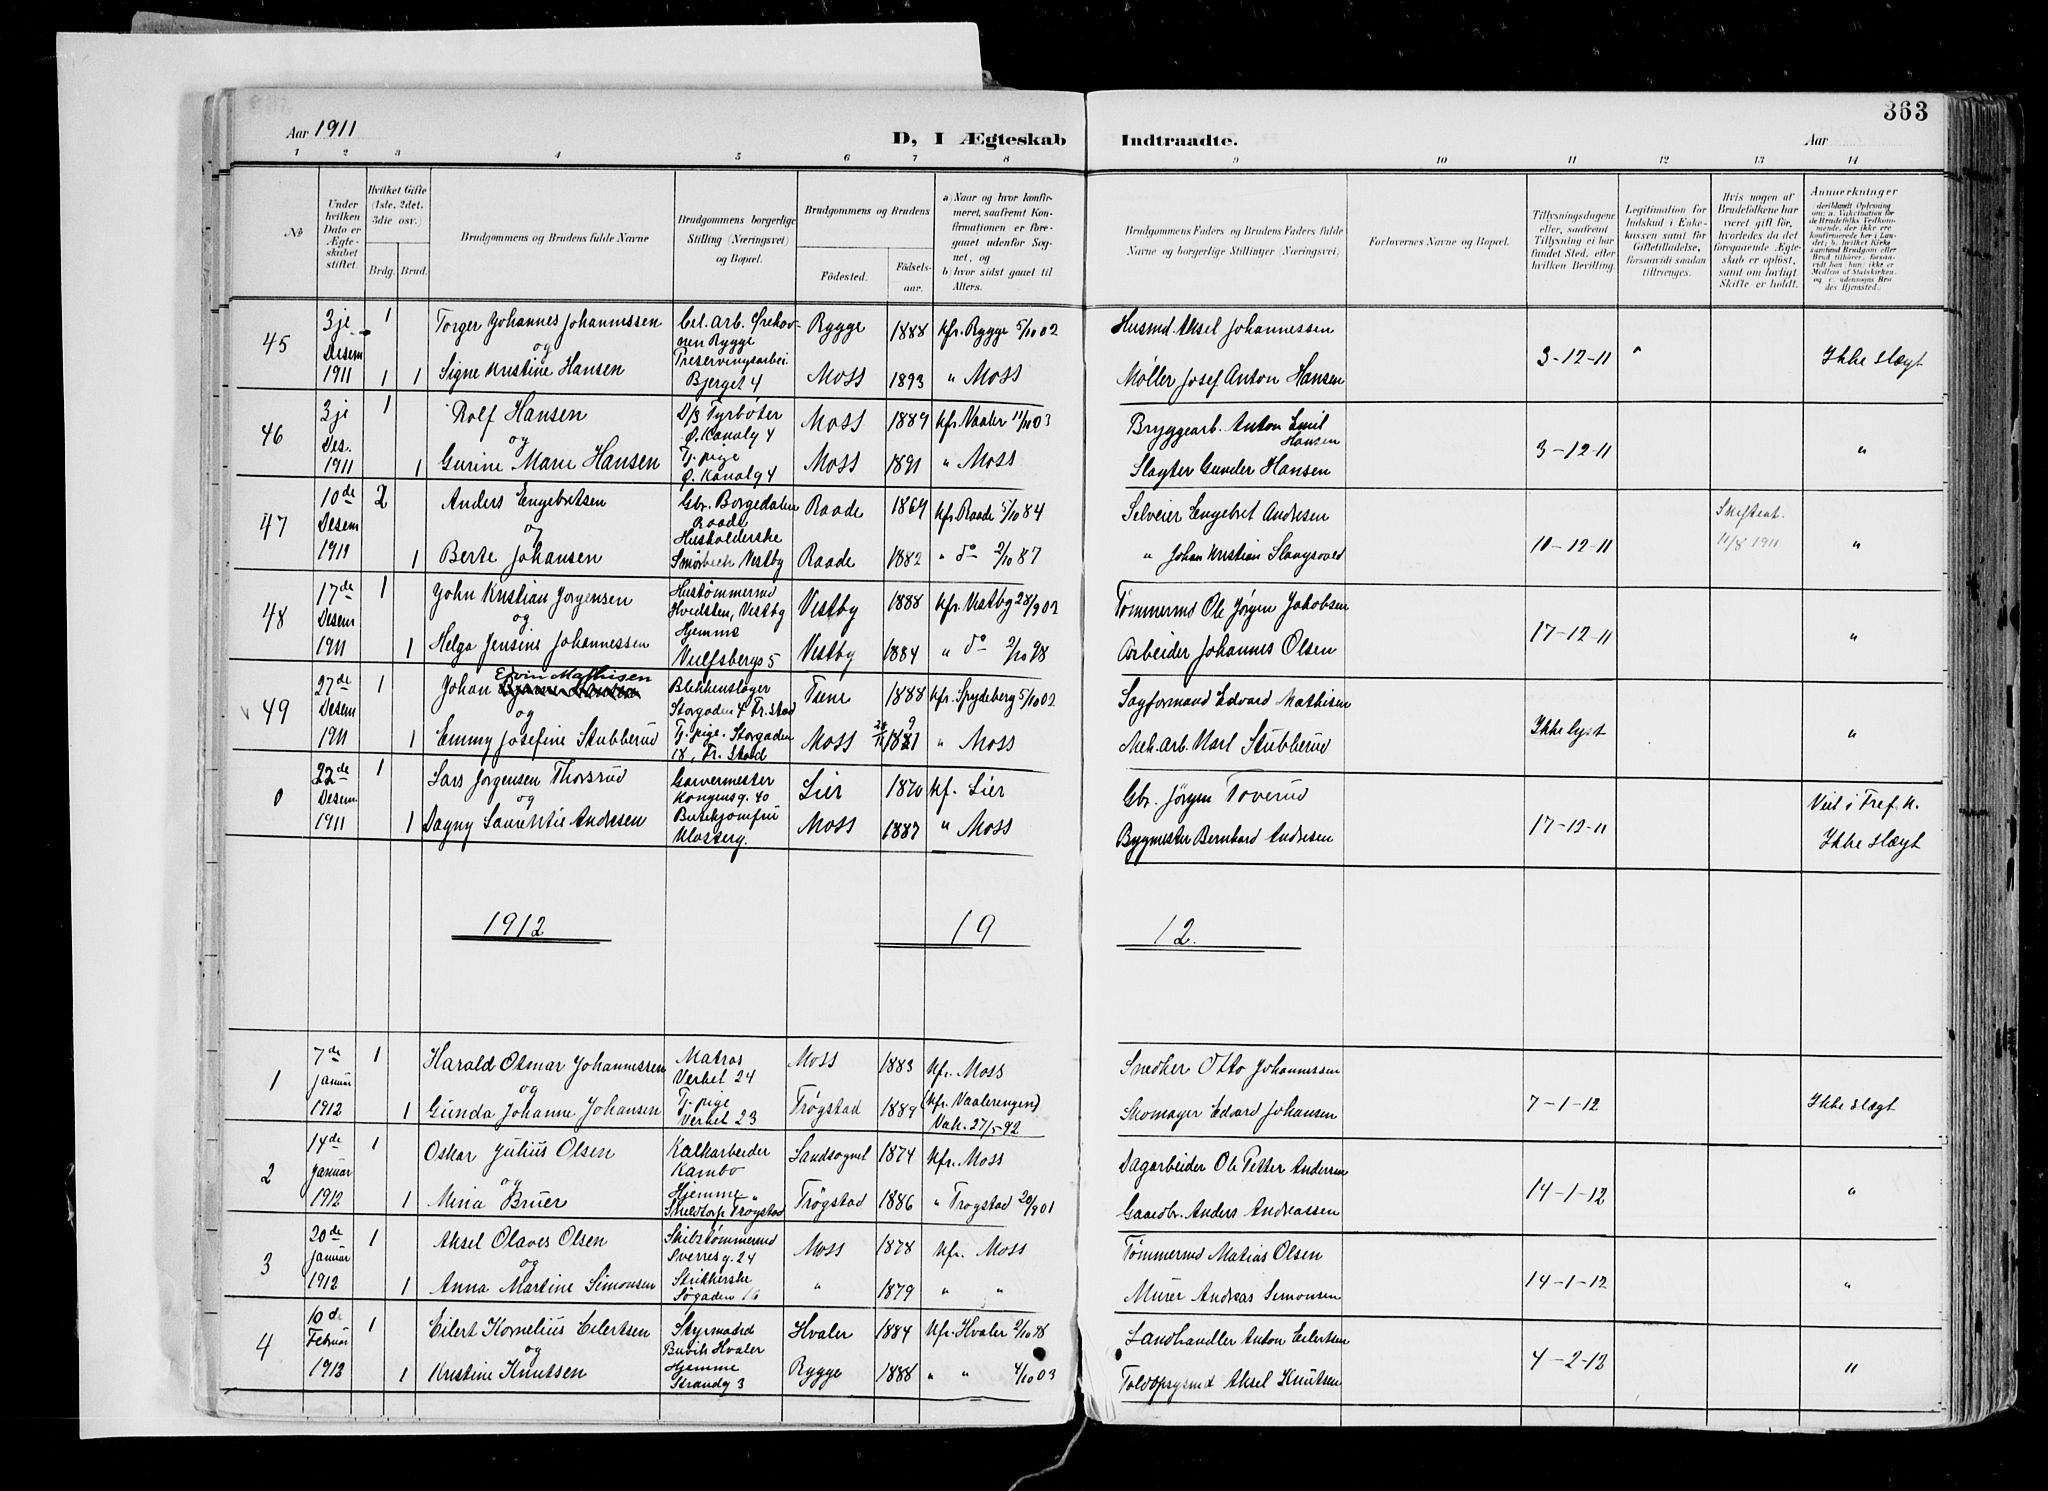 363
Aar 1911
D, I Ægteskab Indtraadte.
Aar
1 2 3 4 5 6 7 8 9 10 11 12 13 14
No
Under hvilken Dato er Ægteskabet stiftet.
Hvilket Gifte (1ste, 2det, 3die osv.)
Brdg. Brud.
Brudgommens og Brudens fulde Navne
Brudgommens borgerlige Stilling (Næringsvei) og Bopæl.
Brudgommens og Brudens
Fødested. Fødselsaar.
a) Naar og hvor konfirmeret, saafremt Konfirmationen er foregaaet udenfor Sognet, og
b) hvor sidst gaaet til Alters.
Brudgommens Faders og Brudens Faders fulde Navne og borgerlige Stillinger (Næringsvei)
Forlovernes Navne og Bopæl.
Tillysningsdagene eller, saafremt Tillysning ei har fundet Sted, efter hvilken Bevilling.
Legitimation for Indskud i Enkekassen samt for Giftetilladelse, forsaavidt saadan tiltrænges.
Hvis nogen af Brudefolkene har været gift før, hvorledes da det foregaaende Ægteskab er opløst, samt om lovligt Skifte er holdt.
Anmerkninger
45 3je Desem 1911 1 Torger Johannes Johannessen Cel. Arb. Ørehovnen Rygge Rygge 1888 Kfr. Rygge 5/10 02 Husmd. Aksel Johannessen
og
1 1 Signe Kristine Hansen Preservingsarbei. Bjerget 4 Moss 1893 " Moss Møller Josef Anton Hansen 3-12-11 " Ikke slægt
46 3je Des. 1911 1 Rolf Hansen D/S Fyrbøter Ø. Kanalg 4 Moss 1889 Kfr. Vaaler 11/10 03 Bryggearb. Anton Emil Hansen
og
1 Gurine Marie Hansen Tj. pige Ø. Kanalg 4 Moss 1891 " Moss Slagter Gunder Hansen 3-12-11 "
47 10de Desem 1911 2 Anders Engebretsen Gbr. Borgedalen Raade Raade 1869 Kfr. Raade 5/10 84 Selveier Engebret Andresen
og
1 Berte Johansen Husholderske Smørbech Vestby Raade 1882 " do 2/10 87 " Johan Kristian Slangsvold 10-12-11 11/8 1911 "
48 17de Desem 1911 1 John Kristian Jorgensen Hustømmermd Hvidsten, Vestby Vestby 1888 Kfr. Vestby 28/9 02 Tømmermd Ole Jørgen Jakobsen
og
1 Helga Jensine Johannessen Hjemme Vulfsbergs 5 Vestby 1884 " do 2/10 98 Arbeider Johannes Olsen 17-12-11 "
49 27de Desem 1911 1 Johan Edvin Mathisen Blekkenslager Storgaden 4 Fr. stad Tune 1888 Kfr. Spydeberg 5/10 02 Sagformand Edvard Mathisen
og
1 Emmy Josefine Stubberud Tj. pige. Storgaden 18, Fr. Stad Moss 1891 " Moss Mek. arb. Karl Stubberud Ikke lyst "
0 22de Desem. 1911 1 Lars Jorgensen Thorsrud Garvermester Kongensg. 40 Lier 1870 Kf. Lier Gbr. Jörgen Toverud
og
1 Dagny Laurentie Andresen Butikjomfru Klosterg. Moss 1887 " Moss Bygmester Bernhard Andresen 17-12-11 Viet i Fref. K. Ikke slægt
1912 19 12.
1 7de Januar 1912 1 Harald Otmar Johannessen Matros Verket 24 Moss 1883 Kfr. Moss Snedker Otto Johannessen
og
1 Gunda Johanne Johansen Tj. pige Verket 23 Trøgstad 1889 (Kfr. Vaalerengen) Vak. 27/5-92 Skomager Edvard Johansen 7-1-12 Ikke slægt
2 14de Januar 1912 1 Oskar Julius Olsen Kalkarbeider Kambo Landsognet 1874 Kfr. Moss Dagarbeider Ole Petter Andersen
og
1 Mina Bruer Hjemme Skeldtorp Trøgstad Trøgstad 1886 " Trogstad 20/9 01 Gaardbr. Anders Andreassen 14-1-12 "
3 20de Januar 1912 1 Aksel Olaves Olsen Skibstømmermd Sverresg. 24 Moss 1878 Kfr. Moss Tømmermd Matias Olsen
og
1 Anna Martine Simonsen Strikkerske Søgaden 16 " 1879 " " Murer Andreas Simonsen 14-1-12 "
4 10de Februar 1912 1 Eilert Kornelius Eilertsen Styrmand Buvik Hvaler Hvaler 1884 Kfr. Hvaler 2/10 98 Landhandler Anton Eilertsen
og
1 Kristine Knutsen Hjemme Strandg 3 Rygge 1888 " " 4/10 03 Toldopsysmd Aksel Knutsen 4-2-12 "